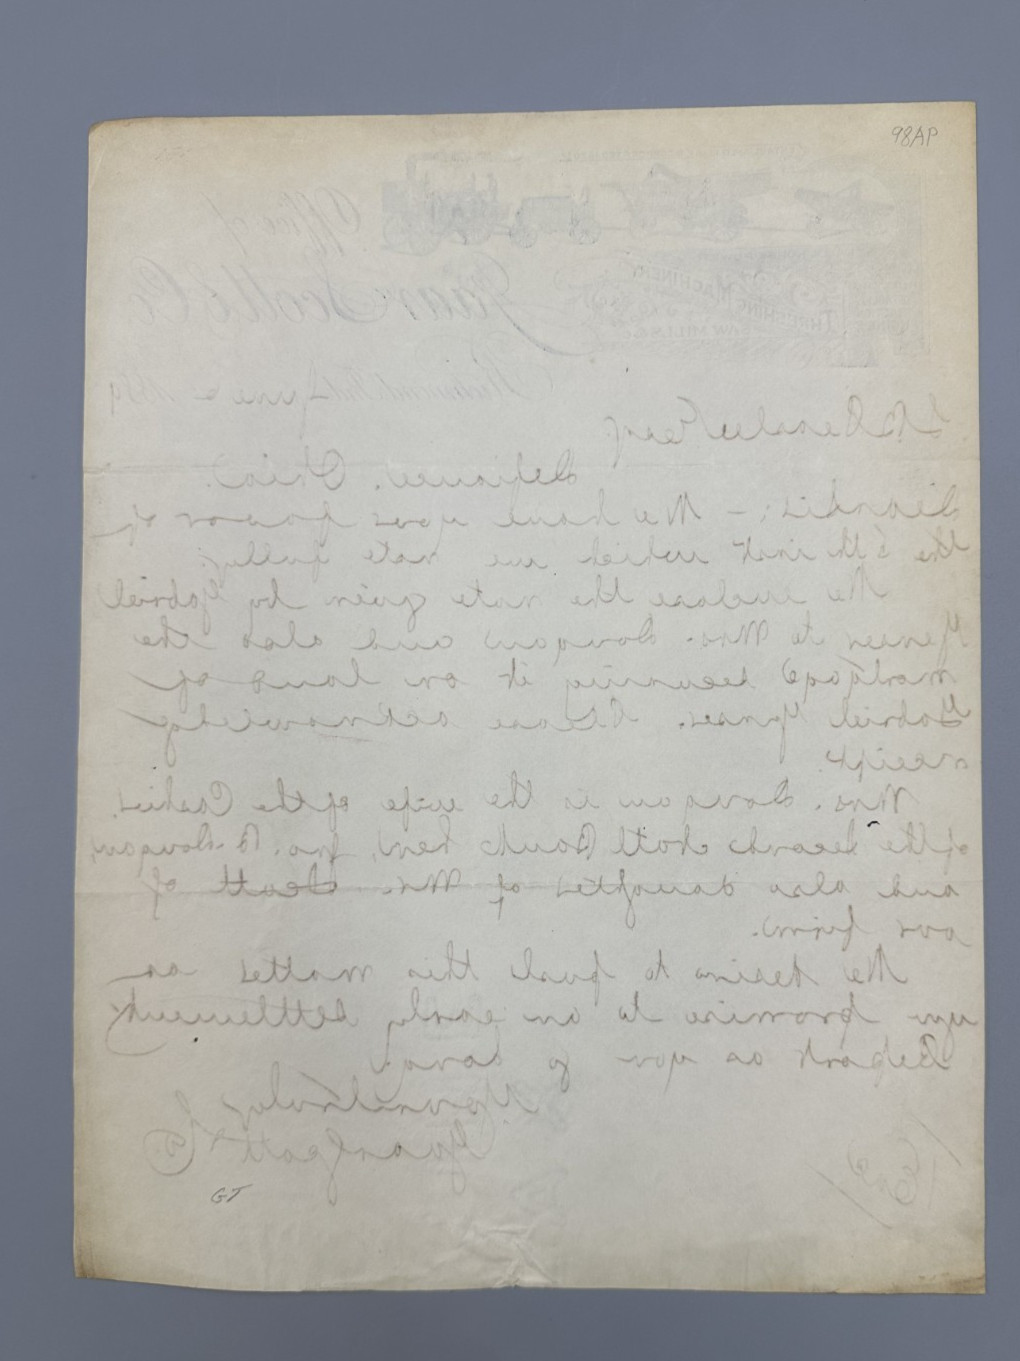 98AP
Office of
Gaar, Scott & Co
Threshing Machinery
Saw Mills &c
Richmond, Ind. June 1889
Defiance, Ohio.
Dear Sir; – We have your favor of
the 5th inst which we note fully.
We enclose the note given by Gabriel
to Mrs. Dougan and also the
mortgage securing it on land of
Gabriel Please acknowledge
receipt.
Mrs. Dougan is the wife of the Cashier
of the Second Natl Bank here, Jno. B. Dougan,
and also daughter of Mr. Scott of
our firm.
We desire to push this matter as
you promise to an early settlement
Report as you go along.
Yours truly
Gaar Scott & Co.
(Enc)
GT